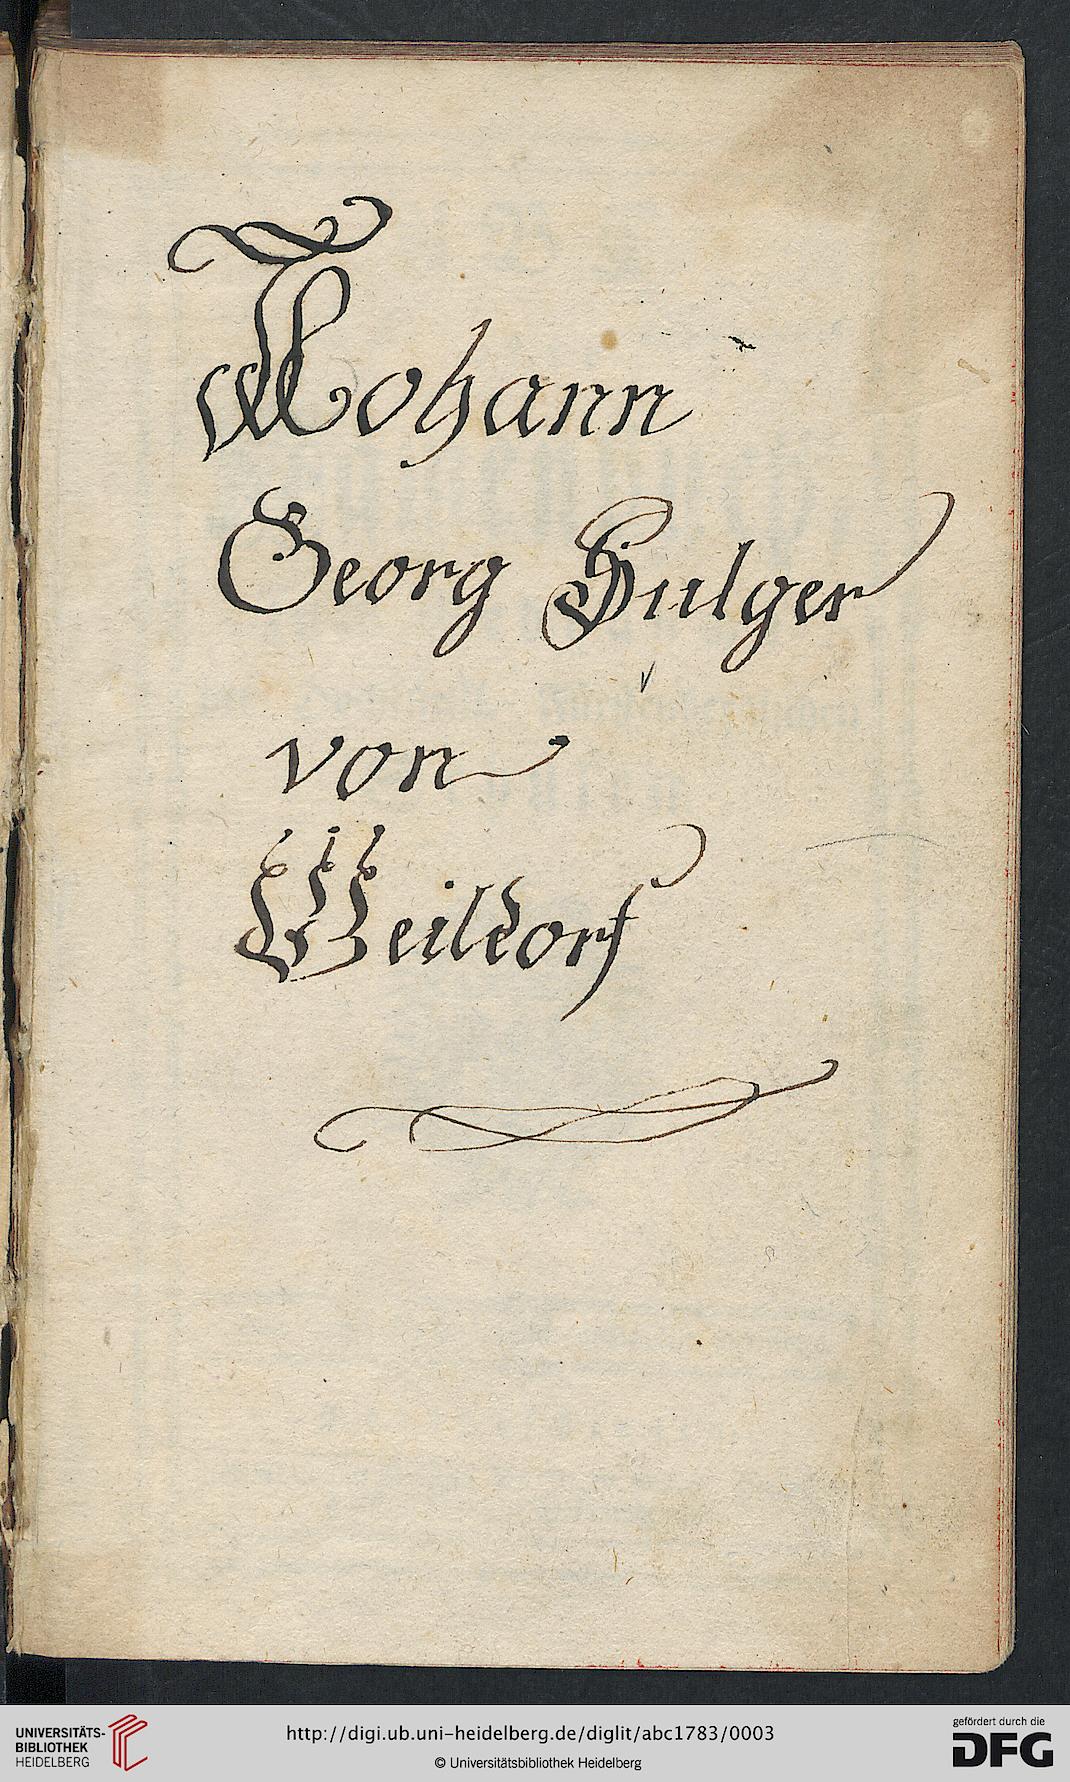 Johann
Georg Hulger
von
Weildorf
UNIVERSITÄTS-
BIBLIOTHEK
HEIDELBERG
http://digi.ub.uni-heidelberg.de/diglit/abc1783/0003
© Universitätsbibliothek Heidelberg
gefördert durch die
DFG